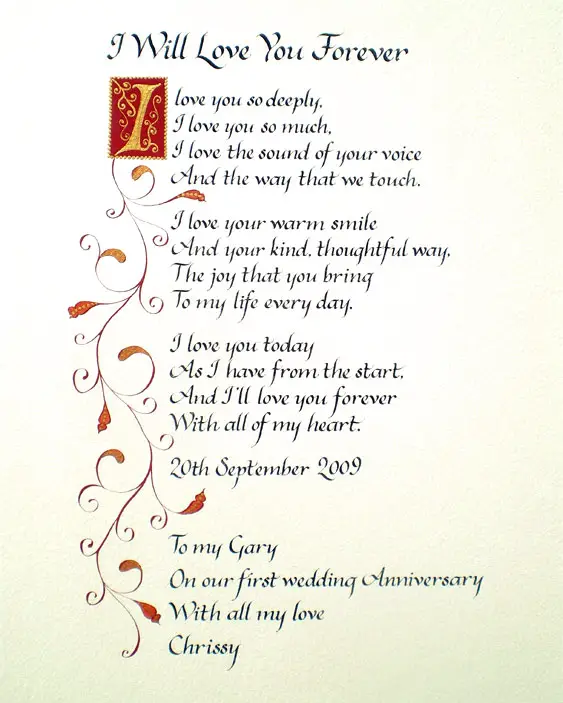 I Will Love You Forever
I love you so deeply,
I love you so much,
I love the sound of your voice
And the way that we touch.
I love your warm smile
And your kind, thoughtful way,
The joy that you bring
To my life every day.
I love you today
As I have from the start,
And I'll love you forever
With all of my heart.
20th September 2009
To my Gary
On our first wedding Anniversary
With all my love
Chrissy